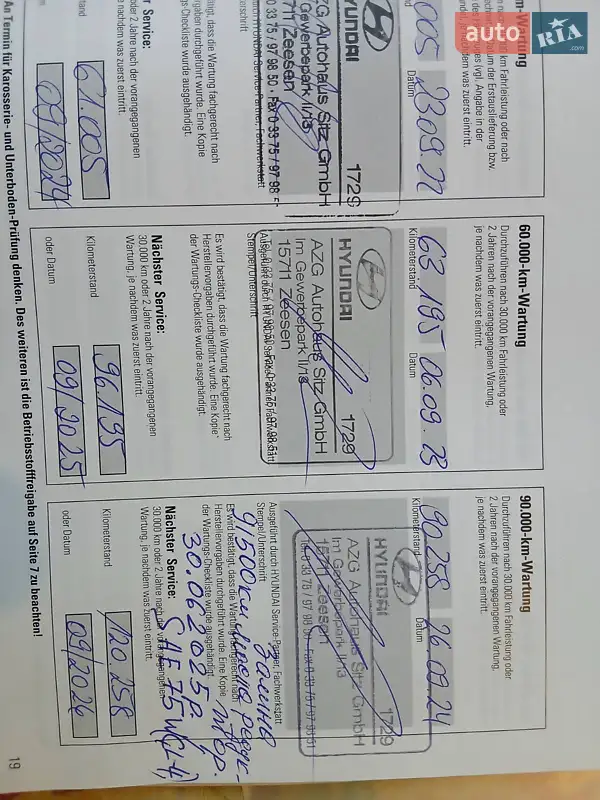 auto RIA.com
m-Wartung
n km Fahrleistung oder nach
um der Erstauslieferung bzw.
es (vgl. Angabe in der
dem was zuerst eintritt.
005
23.09.22
Datum
HYUNDAI
1729
AZG Autohaus Sitz GmbH
Im Gewerbepark 11/13
15711 Zeesen
0 33 75 / 97 98 50 · Fax 0 33 75 / 97 98 5
HYUNDAI Service-Partner, Fachwerkstatt
erschrift
igt, dass die Wartung fachgerecht nach
orgaben durchgeführt wurde. Eine Kopie
gs-Checkliste wurde ausgehändigt.
r Service:
oder 2 Jahre nach der vorangegangenen
e nachdem was zuerst eintritt.
stand
61.005
um
09/2024
60.000-km-Wartung
Durchzuführen nach 30.000 km Fahrleistung oder
2 Jahren nach der vorangegangenen Wartung,
je nachdem was zuerst eintritt.
63 195
06.09.23
Kilometerstand
Datum
HYUNDAI
1729
AZG Autohaus Sitz GmbH
Im Gewerbepark 11/13
15711 Zeesen
Tel. 0 33 75 / 97 98 50 · Fax 0 33 75 / 97 98 51
Ausgeführt durch HYUNDAI Service-Partner, Fachwerkstatt
Stempel/Unterschrift
Es wird bestätigt, dass die Wartung fachgerecht nach
Herstellervorgaben durchgeführt wurde. Eine Kopie
der Wartungs-Checkliste wurde ausgehändigt.
Nächster Service:
30.000 km oder 2 Jahre nach der vorangegangenen
Wartung, je nachdem was zuerst eintritt.
Kilometerstand
96.195
oder Datum
09/2025
90.000-km-Wartung
Durchzuführen nach 30.000 km Fahrleistung oder
2 Jahren nach der vorangegangenen Wartung,
je nachdem was zuerst eintritt.
90.258
26.09.24
Kilometerstand
Datum
HYUNDAI
1729
AZG Autohaus Sitz GmbH
Im Gewerbepark 11/13
15711 Zeesen
Tel. 0 33 75 / 97 98 50 · Fax 0 33 75 / 97 98 51
Ausgeführt durch HYUNDAI Service-Partner, Fachwerkstatt
Stempel/Unterschrift
91500км
30.06.2025р
SAE 75W
Es wird bestätigt, dass die Wartung fachgerecht nach
Herstellervorgaben durchgeführt wurde. Eine Kopie
der Wartungs-Checkliste wurde ausgehändigt.
Nächster Service:
30.000 km oder 2 Jahre nach der vorangegangenen
Wartung, je nachdem was zuerst eintritt.
Kilometerstand
120.258
oder Datum
09/2026
An Termin für Karosserie- und Unterboden-Prüfung denken. Des weiteren ist die Betriebsstofffreigabe auf Seite 7 zu beachten!
19